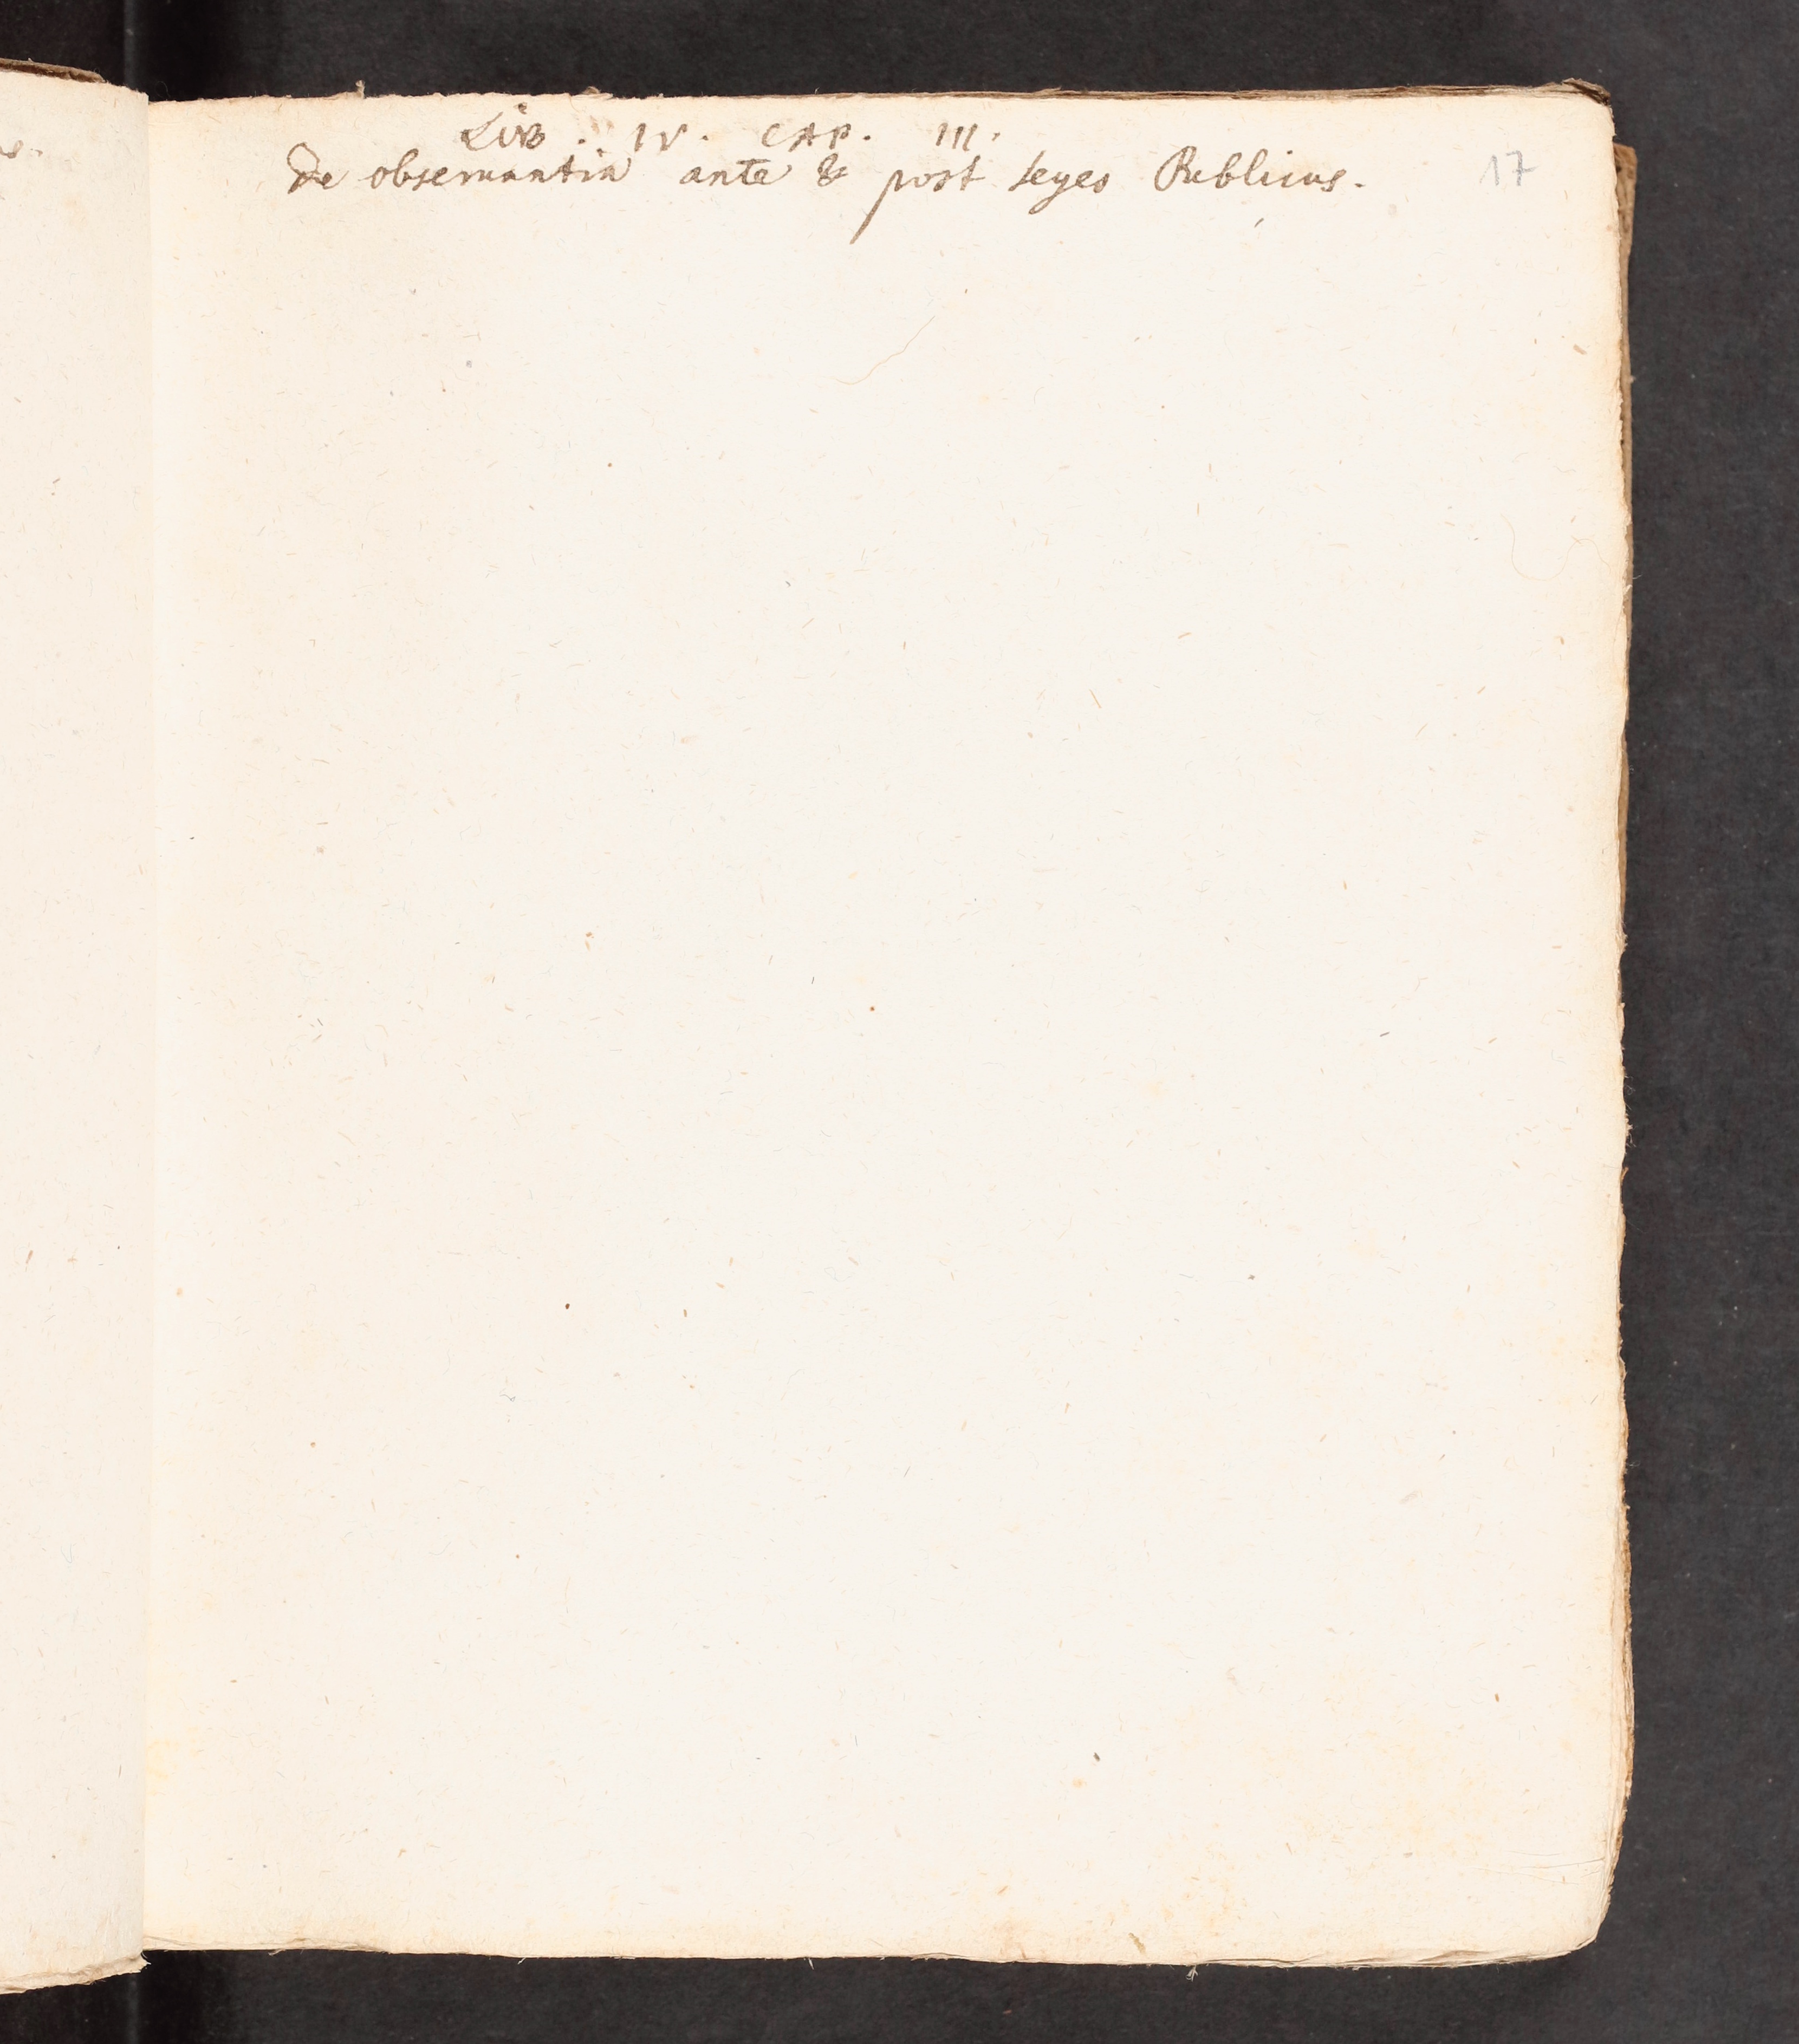 LIB. IV. CAP. III.
De obseruantia ante & post leges Publicas.
17